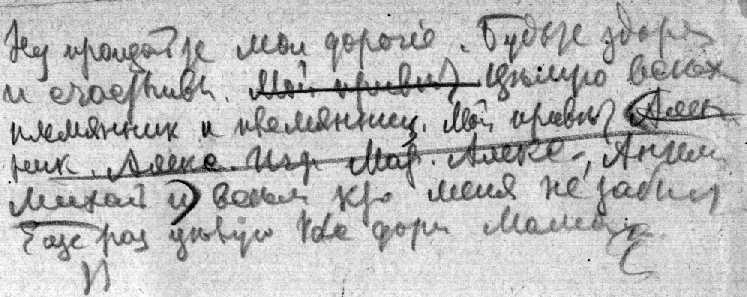 Ну прощайте мои дорогіе. Будьте здоровы
и счастливы. Мой привет Цѣлую всѣх
племянник и племянниц. Мой привет Алек
ник. Алекс. Алекс.
Михаил и всѣм кто меня не забыл
Еще раз цѣлую Вас дорог Мамаша